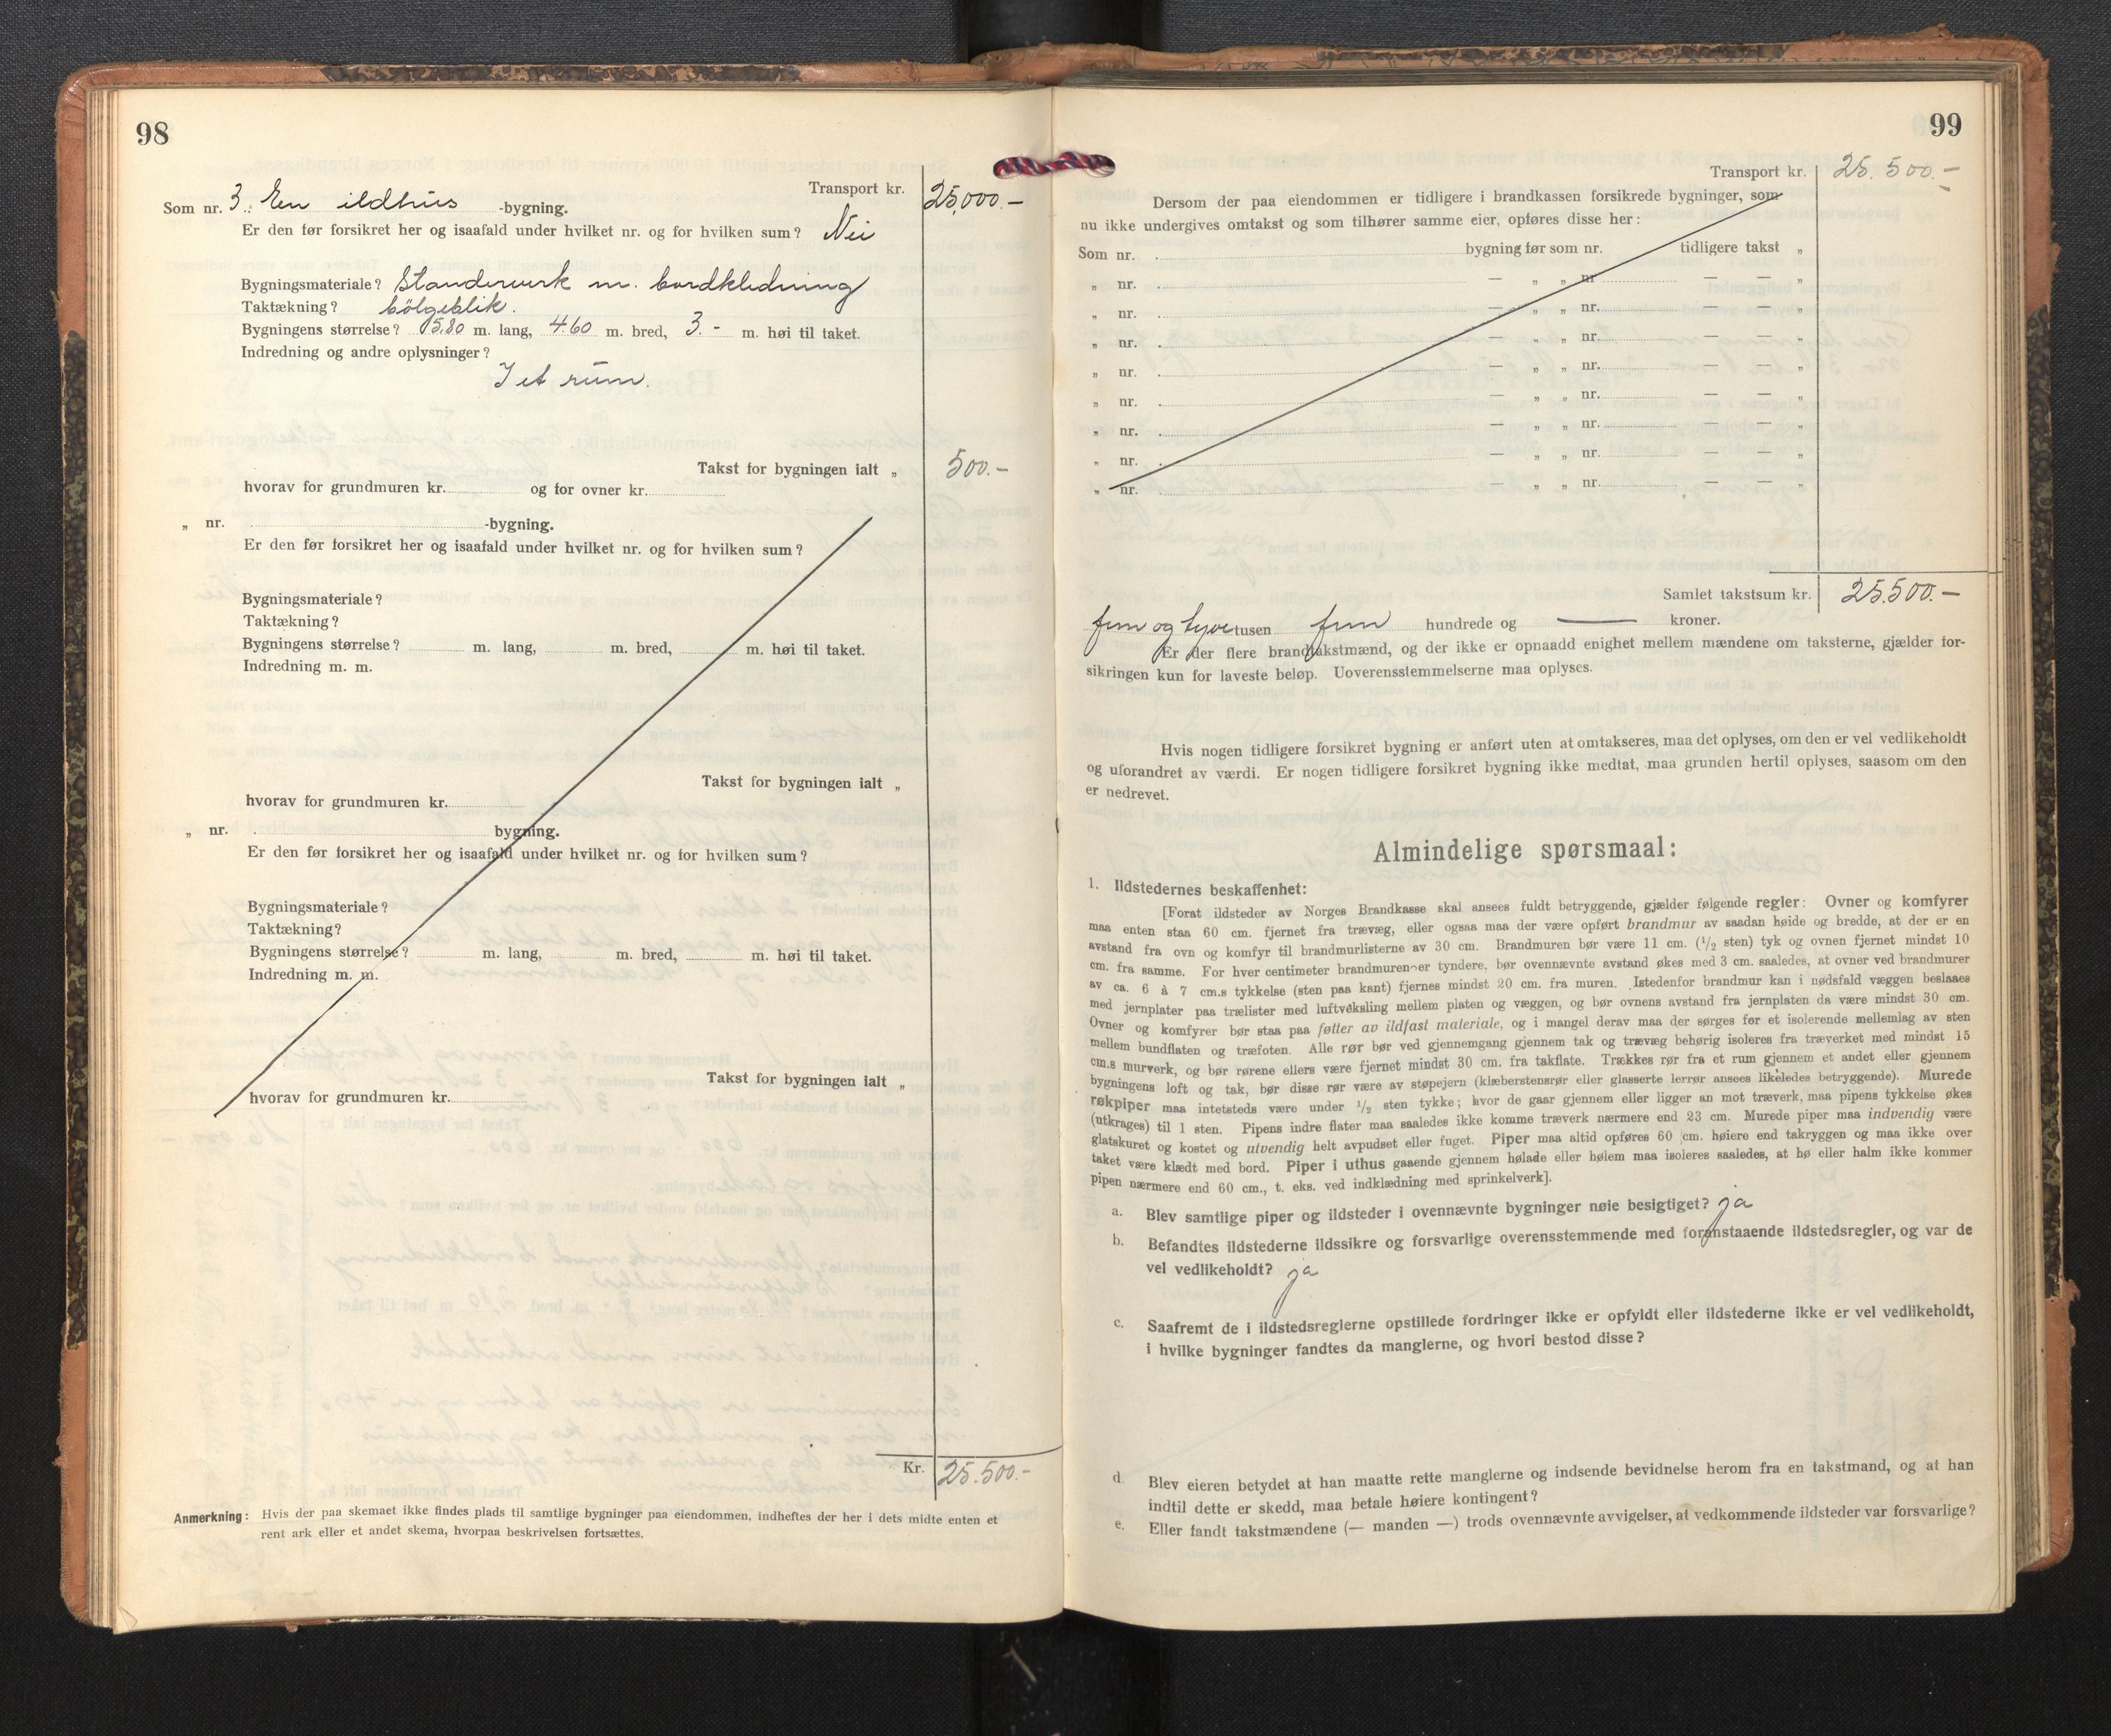 98
Transport kr. 25,000.—
Som nr. 3. En ildhus -bygning.
Er den før forsikret her og isaafald under hvilket nr. og for hvilken sum? Nei
Bygningsmateriale? Standerverk m. bordkledning
Taktækning? bölgeblik.
Bygningens størrelse? 5.80 m. lang, 4.60 m. bred, 3.- m. høi til taket.
Indredning og andre oplysninger?
I et rum.
Takst for bygningen ialt „ 500.—
hvorav for grundmuren kr. og for ovner kr.
„ nr. -bygning.
Er den før forsikret her og isaafald under hvilket nr. og for hvilken sum?
Bygningsmateriale?
Taktækning?
Bygningens størrelse? m. lang, m. bred, m. høi til taket.
Indredning m. m.
Takst for bygningen ialt „
hvorav for grundmuren kr.
„ nr. bygning.
Er den før forsikret her og isaafald under hvilket nr. og for hvilken sum?
Bygningsmateriale?
Taktækning?
Bygningens størrelse? m. lang, m. bred, m. høi til taket.
Indredning m. m.
Takst for bygningen ialt „
hvorav for grundmuren kr.
Kr. 25.500.-
Anmerkning: Hvis der paa skemaet ikke findes plads til samtlige bygninger paa eiendommen, indheftes der her i dets midte enten et
rent ark eller et andet skema, hvorpaa beskrivelsen fortsættes.
99
Transport kr. 25.500.—
Dersom der paa eiendommen er tidligere i brandkassen forsikrede bygninger, som
nu ikke undergives omtakst og som tilhører samme eier, opføres disse her:
Som nr. bygning før som nr. tidligere takst „
„ nr. — „ „ nr. — — „
„ nr. — „ „ nr. — — „
„ nr. — „ „ nr. — — „
„ nr. — „ „ nr. — — „
„ nr. — „ „ nr. — — „
„ nr. — „ „ nr. — — „
„ nr. — „ „ nr. — — „
„ nr. — „ „ nr. — — „
Samlet takstsum kr. 25.500.—
fem og tyve tusen fem hundrede og — kroner.
Er der flere brandtakstmænd, og der ikke er opnaadd enighet mellem mændene om taksterne, gjælder for-
sikringen kun for laveste beløp. Uoverensstemmelserne maa oplyses.
Hvis nogen tidligere forsikret bygning er anført uten at omtakseres, maa det oplyses, om den er vel vedlikeholdt
og uforandret av værdi. Er nogen tidligere forsikret bygning ikke medtat, maa grunden hertil oplyses, saasom om den
er nedrevet.
Almindelige spørsmaal:
1. Ildstedernes beskaffenhet:
[Forat ildsteder av Norges Brandkasse skal ansees fuldt betryggende, gjælder følgende regler: Ovner og komfyrer
maa enten staa 60 cm. fjernet fra trævæg, eller ogsaa maa der være opført brandmur av saadan høide og bredde, at der er en
avstand fra ovn og komfyr til brandmurlisterne av 30 cm. Brandmuren bør være 11 cm. (1/2 sten) tyk og ovnen fjernet mindst 10
cm. fra samme. For hver centimeter brandmuren er tyndere, bør ovennævnte avstand økes med 3 cm. saaledes, at ovner ved brandmurer
av ca. 6 à 7 cm.s tykkelse (sten paa kant) fjernes mindst 20 cm. fra muren. Istedenfor brandmur kan i nødsfald væggen beslaaes
med jernplater paa trælister med luftveksling mellem platen og væggen, og bør ovnens avstand fra jernplaten da være mindst 30 cm.
Ovner og komfyrer bør staa paa føtter av ildfast materiale, og i mangel derav maa der sørges for et isolerende mellemlag av sten
mellem bundflaten og træfoten. Alle rør bør ved gjennemgang gjennem tak og trævæg behørig isoleres fra træverket med mindst 15
cm.s murverk, og bør rørene ellers være fjernet mindst 30 cm. fra takflate. Trækkes rør fra et rum gjennem et andet eller gjennem
bygningens loft og tak, bør disse rør være av støpejern (klæberstensrør eller glasserte lerrør ansees likeledes betryggende). Murede
røkpiper maa intetsteds være under 1/2 sten tykke; hvor de gaar gjennem eller ligger an mot træverk, maa pipens tykkelse økes
(utkrages) til 1 sten. Pipens indre flater maa saaledes ikke komme træverk nærmere end 23 cm. Murede piper maa indvendig være
glatskuret og kostet og utvendig helt avpudset eller fuget. Piper maa altid opføres 60 cm. høiere end takryggen og maa ikke over
taket være klædt med bord. Piper i uthus gaaende gjennem hølade eller hølem maa isoleres saaledes, at hø eller halm ikke kommer
pipen nærmere end 60 cm., t. eks. ved indklædning med sprinkelverk].
a. Blev samtlige piper og ildsteder i ovennævnte bygninger nøie besigtiget? ja
b. Befandtes ildstederne ildssikre og forsvarlige overensstemmende med foranstaaende ildstedsregler, og var de
vel vedlikeholdt? ja
c. Saafremt de i ildstedsreglerne opstillede fordringer ikke er opfyldt eller ildstederne ikke er vel vedlikeholdt,
i hvilke bygninger fandtes da manglerne, og hvori bestod disse?
d. Blev eieren betydet at han maatte rette manglerne og indsende bevidnelse herom fra en takstmand, og at han
indtil dette er skedd, maa betale høiere kontingent?
e. Eller fandt takstmændene (— manden —) trods ovennævnte avvigelser, at vedkommende ildsteder var forsvarlige?